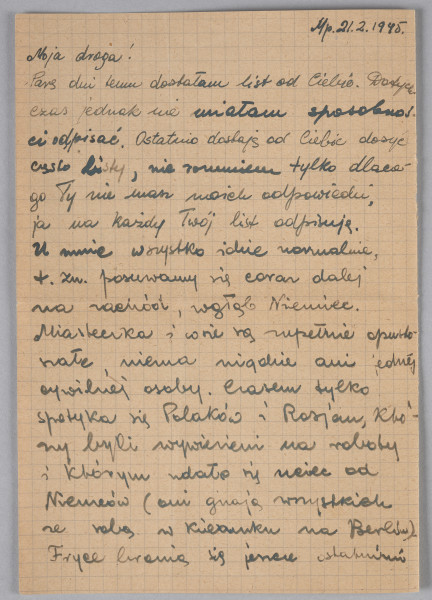 Mp. 21.2.1945.
Moja droga!
Parę dni temu dostałam list od Ciebie. Dotych
czas jednak nie miałam sposobnoś-
ci odpisać. Ostatnio dostaję od Ciebie dosyć
często listy, nie rozumiem tylko dlacze-
go Ty nie masz moich odpowiedzi,
ja na każdy Twój list odpisuję.
U mnie wszystko idzie normalnie,
t. zn. posuwamy się coraz dalej
na zachód, wgłąb Niemiec.
Miasteczka i wsie są zupełnie opusto-
szałe niema nigdzie ani jednej
cywilnej osoby. Czasem tylko
spotyka się Polaków i Rosjan, któ-
rzy byli wywiezieni na roboty
i którym udało się uciec od
Niemców (oni gnają wszystkich
ze sobą w kierunku na Berlin).
Fryce bronią się jeszcze ostatnimi